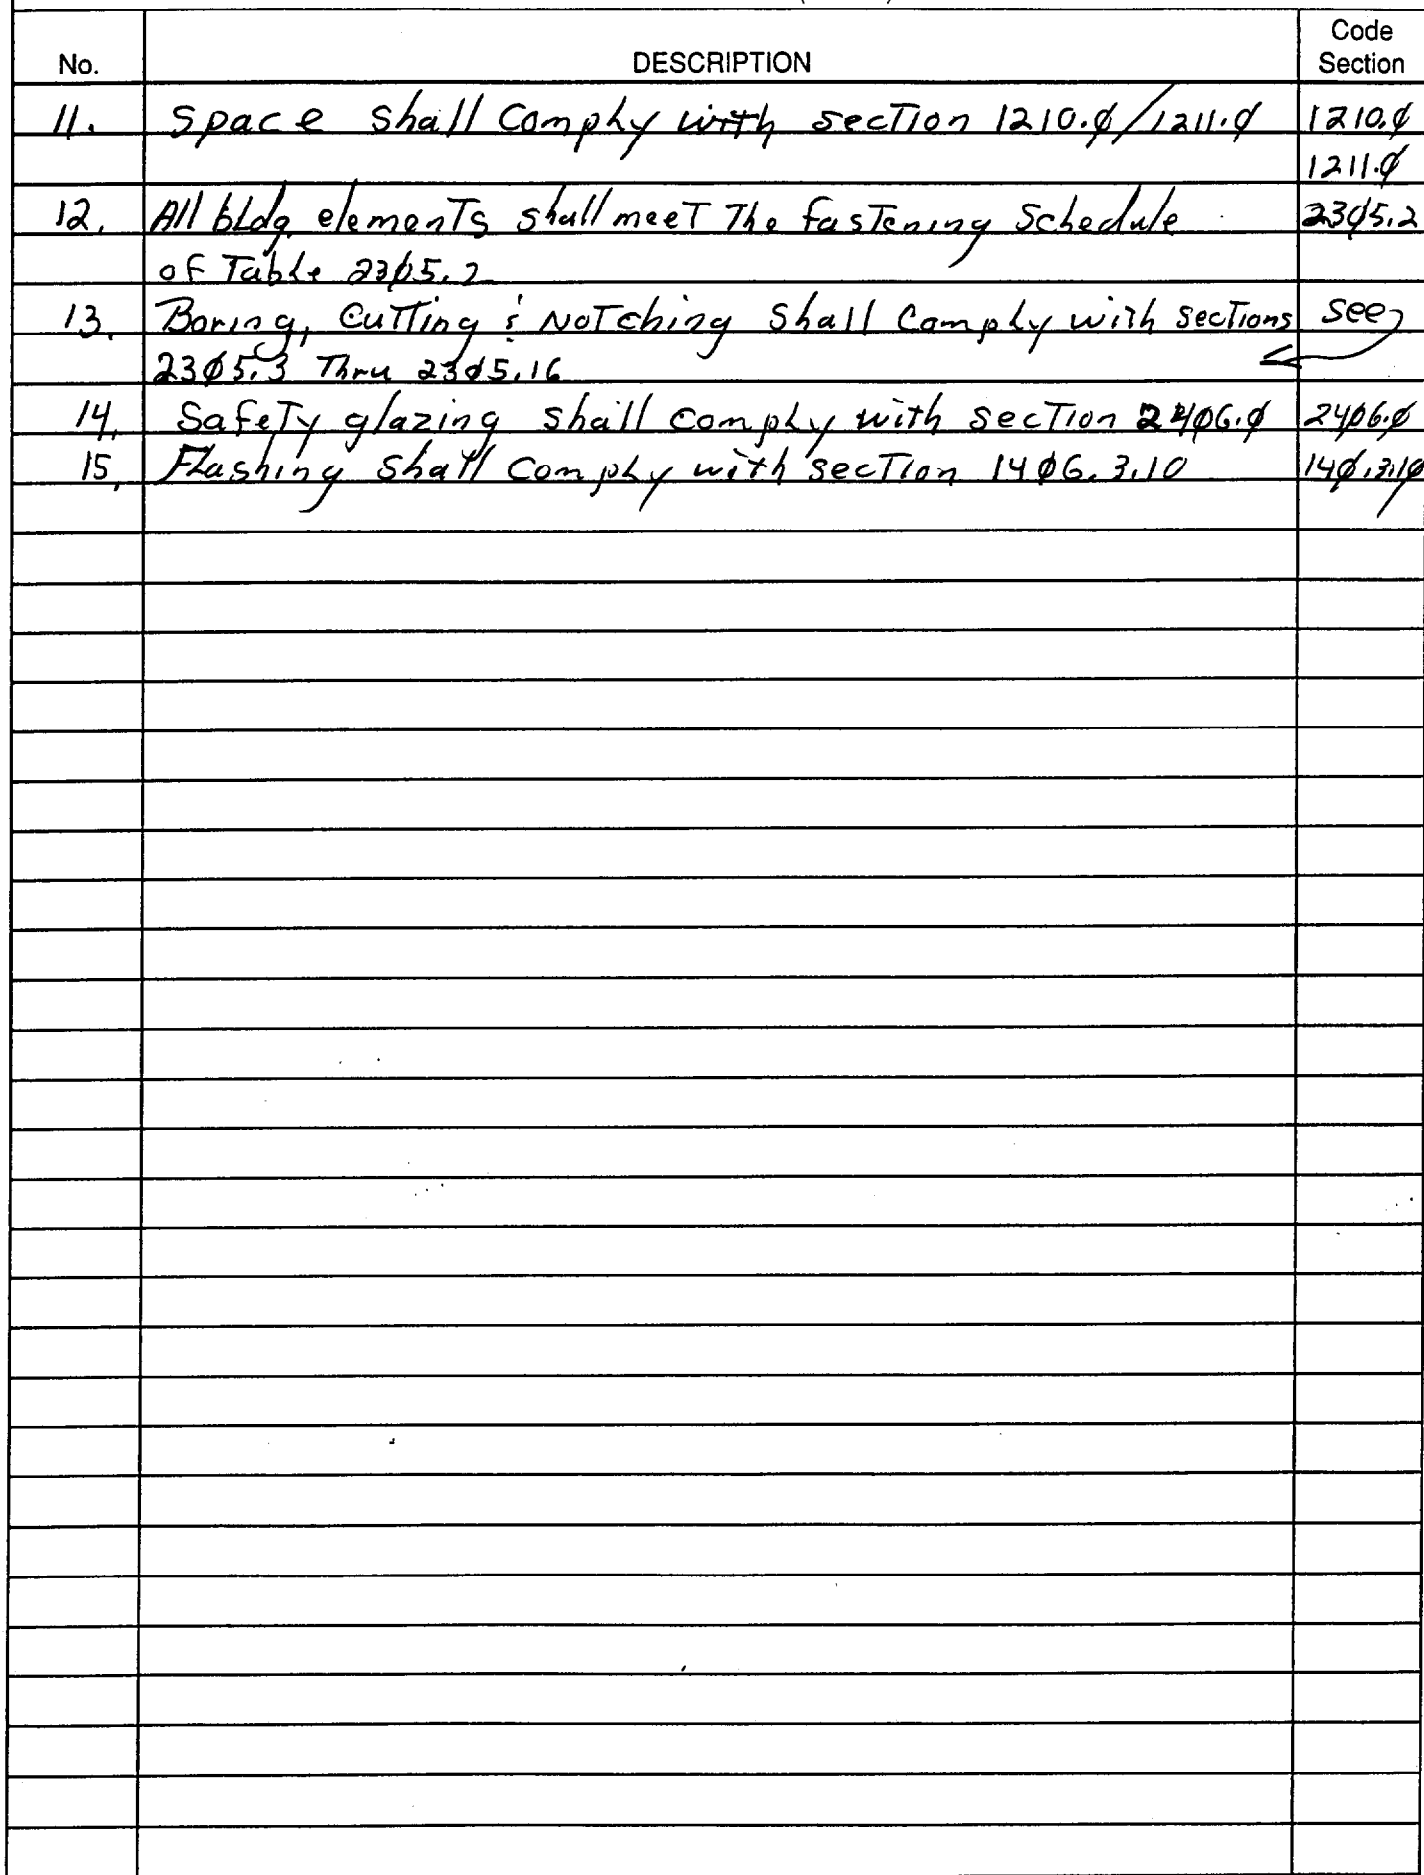 Code
No. DESCRIPTION Section
11. Space shall Comply with section 1210.0/1211.0 1210.0
1211.0
12. All bldg. elements shall meet The fastening Schedule 2305.2
of Table 2305.2
13. Boring, Cutting & Notching Shall Comply with sections see
2305.3 Thru 2305.16
14. Safety glazing shall comply with section 2406.0 2406.0
15. Flashing Shall Comply with section 1406.3.10 140.3.10